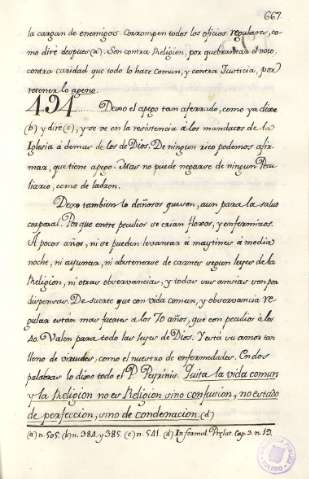 667.
la cargan de enemigos. Corrompen todos los oficios regulares, co-
mo diré despues (a). Son contra Religion, por quebrantar el voto,
contra caridad que todo lo hace comun, y contra Justicia, por
retener lo ageno.
494 Dexo el apego tan aferrado, como ya dixe
(b) y diré (c), y se ve en la resistencia a los mandatos de la
Iglesia a demas de los de Dios. De ningun rico podemos afir-
mar, que tiene apego. Mas no puede negarse de ningun Pecu-
liario, como de ladron.
Dexo tambien lo dañosos que son, aun para la salud
corporal. Porque entre peculios se crian floxos, y enfermizos.
A pocos años, ni se pueden levantar a maytines à media
noche, ni ayunar, ni abstenerse de carnes segun leyes de la
Religion, ni otras observancias, y todas sus ansias son por
dispensas. De suerte que con vida comun, y observancia re-
gular estan mas fuertes a los 70 años, que con peculios a los
40. Valen para todo las leyes de Dios. Y está su amor tan
lleno de virtudes, como el nuestro de enfermedades. En dos
palabras lo dixo todo el P. Peyrinis. Quita la vida comun
y la Religion no es Religion sino confusion, no estado
de perfeccion, sino de condenacion (d)
(a) n. 505. (b) n. 384. y 385. (c) n. 541. (d) In formul. Prælat. Cap. 3. n. 19.